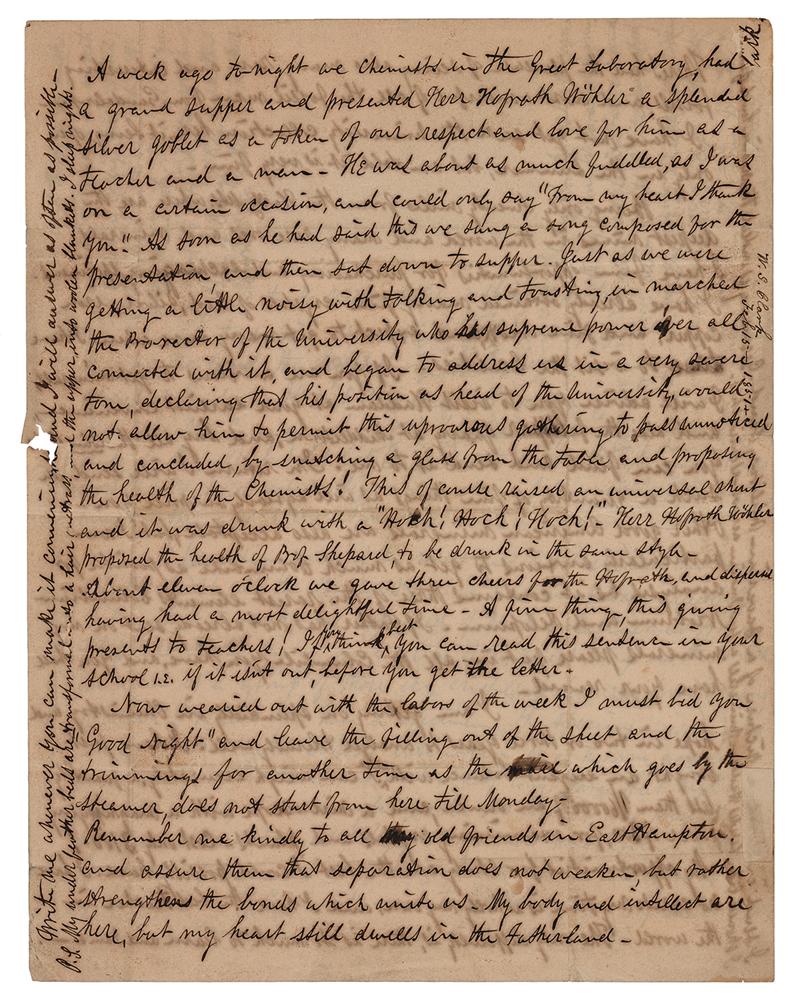 A week ago to-night we chemists in the Great Laboratory, had
a grand supper and presented Herr Hofrath Wöhler a splendid
silver goblet as a token of our respect and love for him as a
teacher and a man – He was about as much fuddled, as I was
on a certain occasion, and could only say "From my heart I thank
you." As soon as he had said this we sung a song composed for the
presentation, and then sat down to supper. Just as we were
getting a little noisy with talking and toasting, in marched
the Pro-rector of the University who has supreme power over all
connected with it, and began to address us in a very severe
tone, declaring that his position as head of the University, would
not allow him to permit this uproarous gathering to pass unnoticed
and concluded, by snatching a glass from the table and proposing
the health of the Chemists! This of course raised an universal shout
and it was drunk with a "Hoch! Hoch! Hoch!" – Herr Hofrath Wöhler
proposed the health of Prof Shepard, to be drunk in the same style –
About eleven o'clock we gave three cheers for the Hofrath, and dispersed
having had a most delightful time – A fine thing, this giving
presents to teachers! If you think best you can read this sentence in your
school i.e. if it isn't out, before you get the letter –
Now wearied out with the labors of the week I must bid you
Good Night" and leave the filling out of the sheet and the
trimmings for another time as the which goes by the
steamer, does not start from here till Monday –
Remember me kindly to all my old friends in East Hampton.
and assure them that separation does not weaken but rather
strengthens the bonds which unite us – My body and intellect are
here, but my heart still dwells in the Fatherland –
Write me whenever you can make it convenient and I will answer as often as possible –
P.S. My under feather beds are transformed into a hair mattrass, and the upper, into woolen blankets. I sleep nights.
W. S. Clark